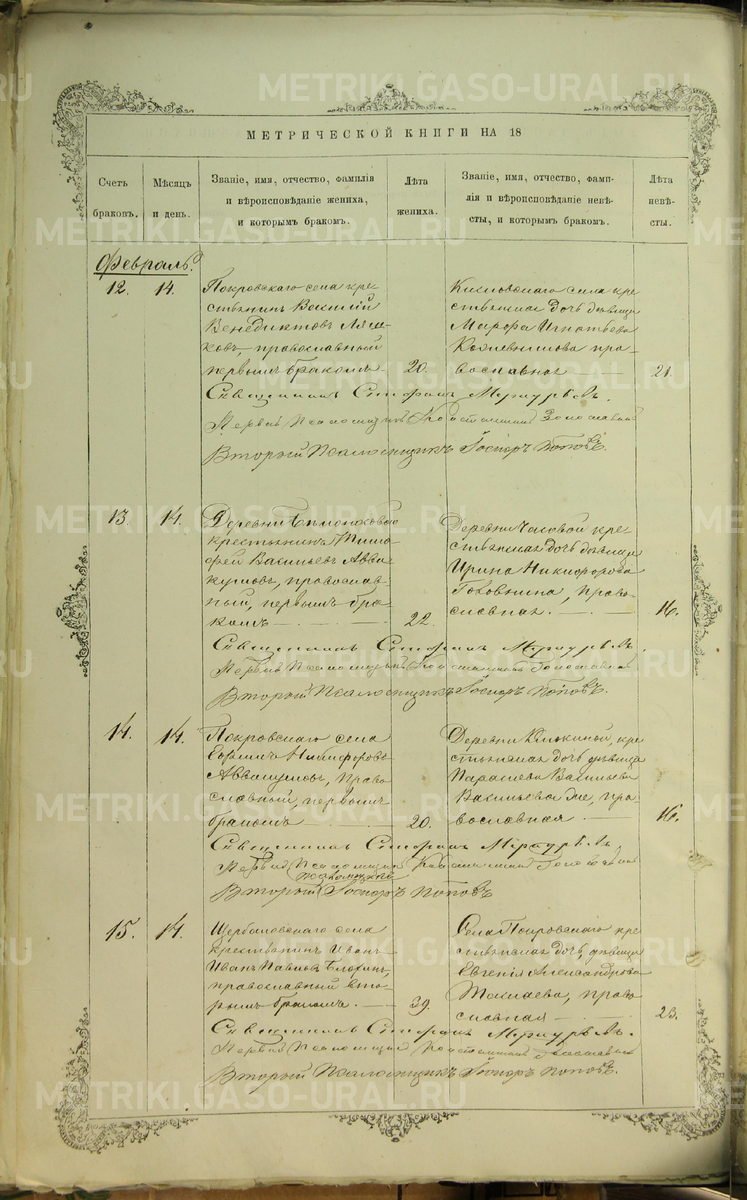 METRIKI.GASO-URAL.RU
МЕТРИЧЕСКОЙ КНИГИ НА 18
Счетъ браковъ.
Мѣсяцъ и день.
Званіе, имя, отчество, фамилія и вѣроисповѣданіе жениха, и которымъ бракомъ.
Лѣта жениха.
Званіе, имя, отчество, фамилія и вѣроисповѣданіе невѣсты, и которымъ бракомъ.
Лѣта невѣсты.
Февраль.
12. 14.
Покровскаго села кре-
стьянинъ Василій
Венедиктовъ Ляш-
ковъ православный
первымъ бракомъ 20.
села кре
стьянская дочь дѣвица
Марфа Игнатьева
Кожевникова пра-
вославная 21.
Священникъ Стефанъ Меркурьевъ.
Первый Псаломщикъ Константинъ
Второй Псаломщикъ Госпоръ Поповъ.
13. 14.
Деревни
крестьянинъ Тимо-
фей Васильевъ Авва-
кумовъ, православ-
ный, первымъ бра-
комъ 22.
Деревни Часовой кре-
стьянская дочь дѣвица
Ирина Никифорова
Головнина, Право-
славная. 16.
Священникъ Стефанъ Меркурьевъ.
Первый Псаломщикъ Константинъ
Второй Псаломщикъ Госпоръ Поповъ.
14. 14.
Покровскаго села
Евфимій Никифоровъ
Аввакумовъ, Право
славный, первымъ
бракомъ 20.
Деревни Клюкиной, кре
стьянская дочь дѣвица
Параскева Васильева
Васильева же, пра-
вославная 16.
Священникъ Стефанъ Меркурьевъ.
Первый Псаломщикъ Константинъ
Псаломщикъ
Второй Госпоръ Поповъ
15. 14.
Щербаковскаго села
крестьянинъ Иванъ
Иванъ Павловъ Блохинъ,
православный вто-
рымъ бракомъ. 39.
Села Покровскаго кре
стьянская дочь, дѣвица
Евгенія Александрова
Толмачева, право
славная 23.
Священникъ Стефанъ Меркурьевъ.
Первый Псаломщикъ Константинъ
Второй Псаломщикъ Госпоръ Поповъ.